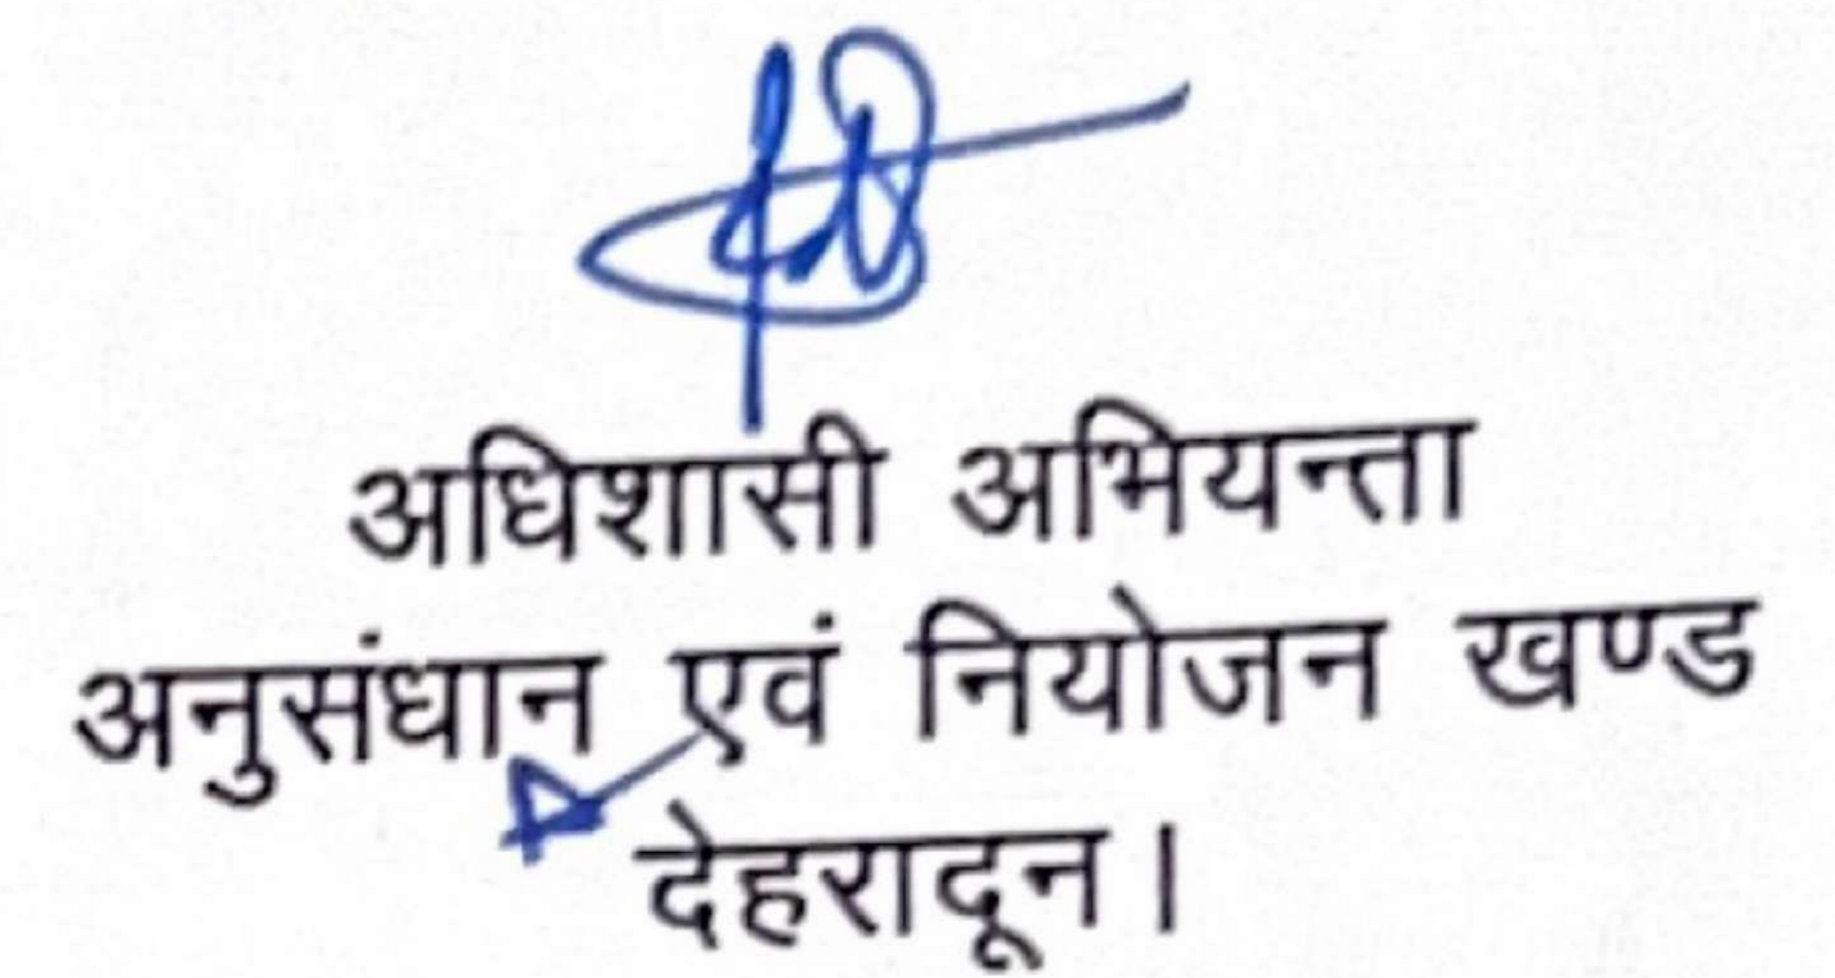 अधिशासी अभियन्ता
अनुसंधान एवं नियोजन खण्ड
देहरादून।